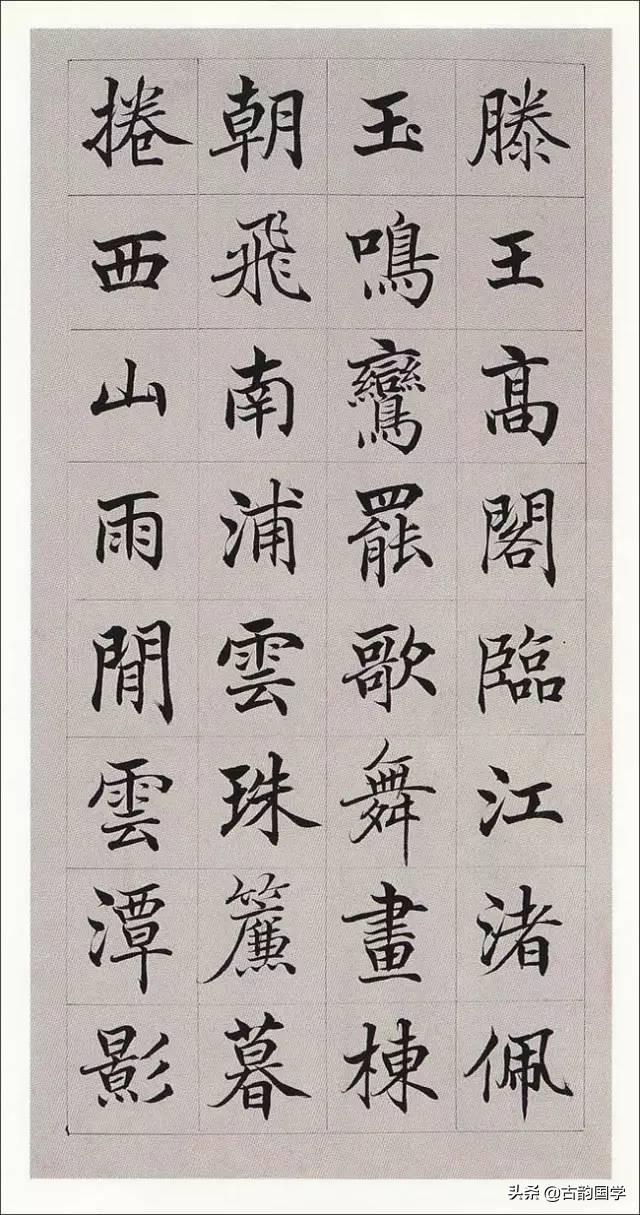 滕王高閣臨江渚佩
玉鳴鸞罷歌舞畫棟
朝飛南浦雲珠簾暮
捲西山雨閒雲潭影
头条 @古韵国学